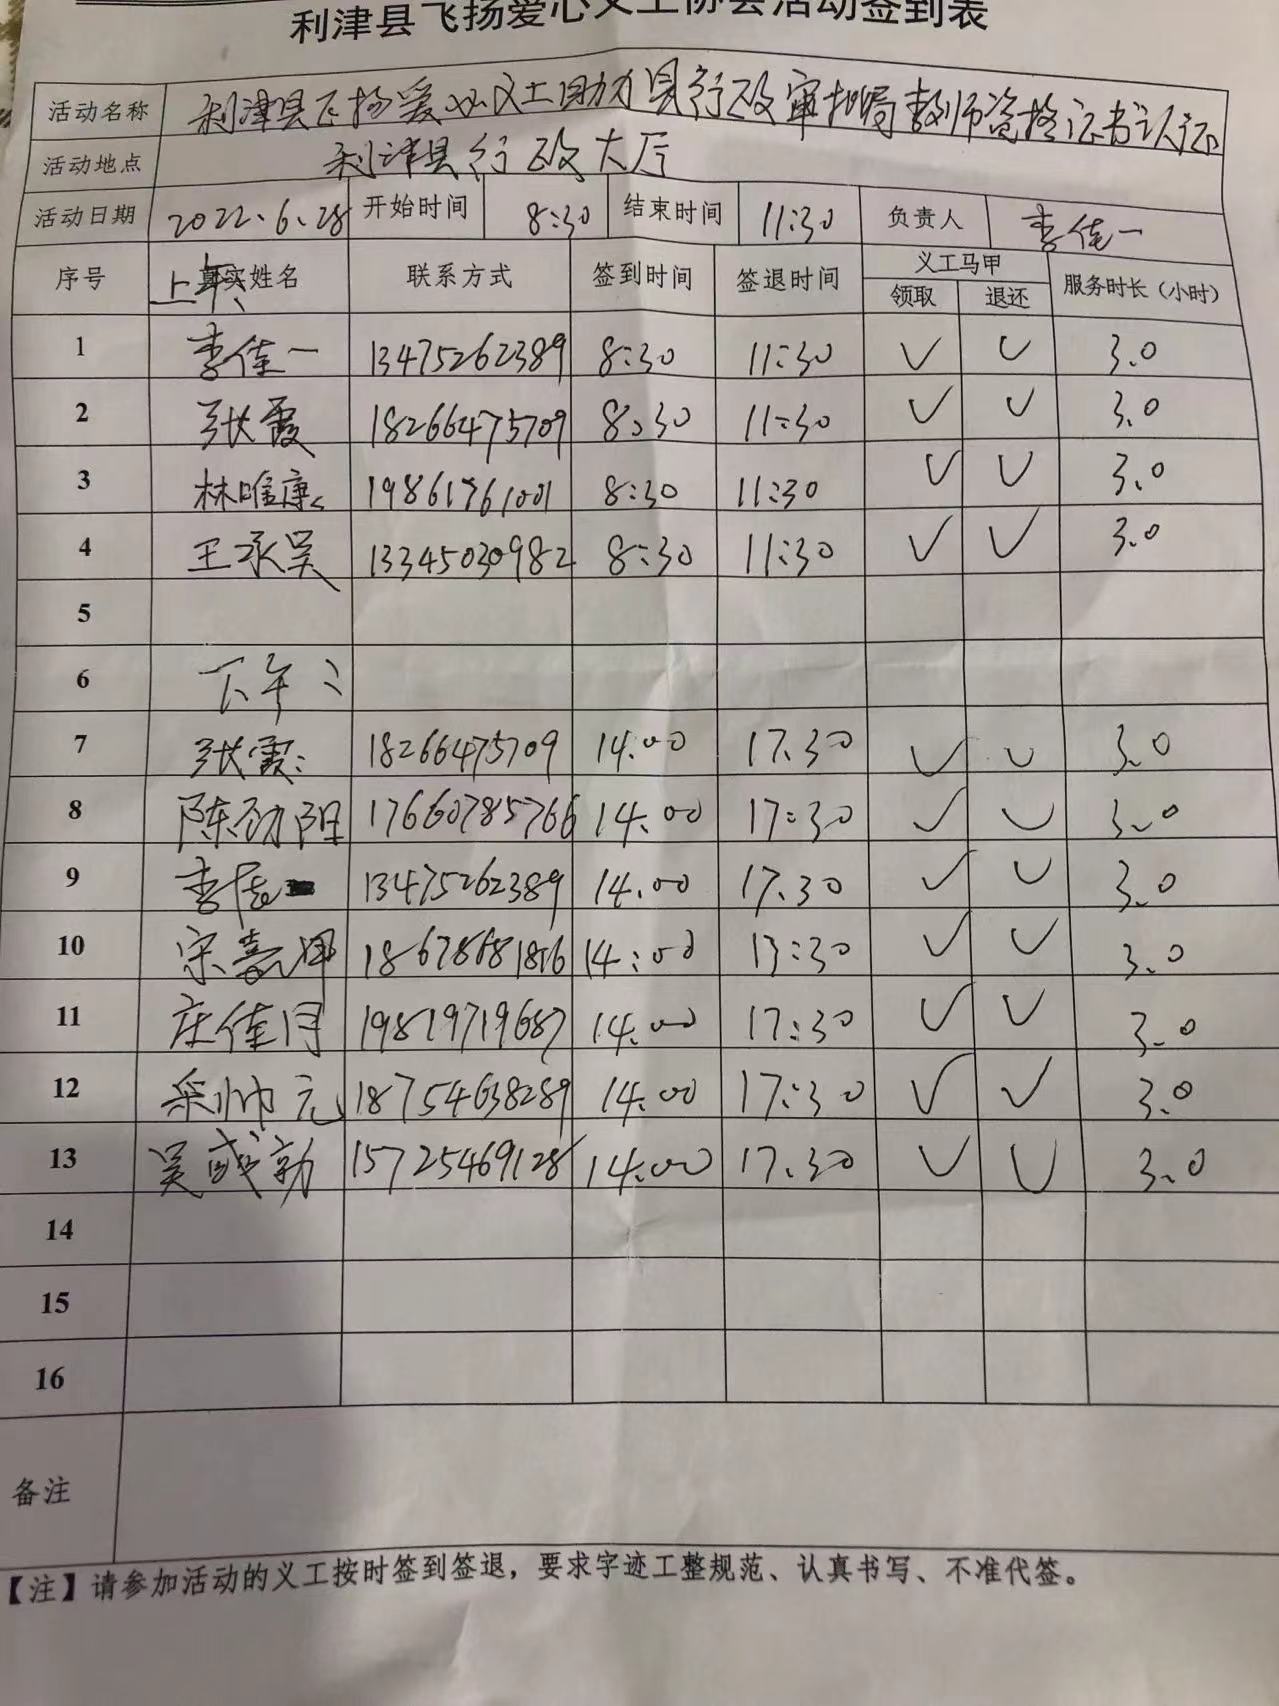 利津县飞扬爱心义工协会活动签到表
活动名称 利津县飞扬爱心义工助力县行政审批局教师资格证书认证
活动地点 利津县行政大厅
活动日期 2022.6.28 开始时间 8:30 结束时间 11:30 负责人 李佳一
序号 真实姓名 联系方式 签到时间 签退时间 义工马甲 服务时长（小时）
上午： 领取 退还
1 李佳一 13475262389 8:30 11:30 ✓ ✓ 3.0
2 张霞 18266475709 8:30 11:30 ✓ ✓ 3.0
3 林唯康 19861761001 8:30 11:30 ✓ ✓ 3.0
4 王承昊 13345030982 8:30 11:30 ✓ ✓ 3.0
5
6 下午：
7 张霞 18266475709 14:00 17:30 ✓ ✓ 3.0
8 陈劲阳 17660785766 14:00 17:30 ✓ ✓ 3.0
9 李佳一 13475262389 14:00 17:30 ✓ ✓ 3.0
10 宋嘉 14:00 17:30 ✓ ✓ 3.0
11 庄佳月 19819719687 14:00 17:30 ✓ ✓ 3.0
12 帅元 18754638289 14:00 17:30 ✓ ✓ 3.0
13 吴 15725469128 14:00 17:30 ✓ ✓ 3.0
14
15
16
备注
【注】请参加活动的义工按时签到签退，要求字迹工整规范、认真书写、不准代签。